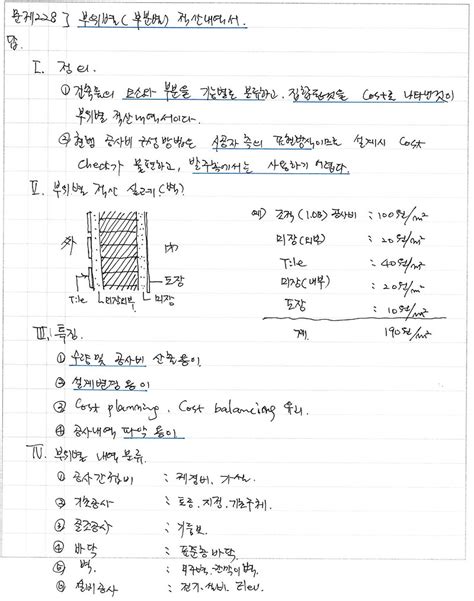 문제228) 부위별(부분별) 적산내역서.
답.
I. 정의.
① 건축물의 요소와 부분을 기능별로 분류하고, 집합된것을 Cost로 나타낸것이
부위별 적산내역서이다.
② 현행 공사비 구성 방법은 시공자 측의 표현방식이므로 설계시 Cost
Check가 불편하고, 발주측에서는 사용하기 어렵다.
II. 부위별 적산 실례(벽)
예) 조적(1.0B) 공사비 : 100원/m²
미장(외부) : 20원/m²
Tile : 40원/m²
미장(내부) : 20원/m²
도장 : 10원/m²
계. 190원/m²
외 내
도장
Tile 미장 미장
III. 특징.
① 수량 및 공사비 산출 용이
② 설계변경 용이
③ Cost planning, Cost balancing 유리.
④ 공사내역 파악 용이
IV. 부위별 내역 분류.
① 공사간접비 : 제경비, 가설.
② 기초공사 : 토공, 지정, 기초구체.
③ 골조공사 : 기둥, 보
④ 바닥 : 표준층 바닥.
⑤ 벽. : 외주벽, 칸막이벽.
⑥ 설비공사 : 전기, 설비, Elev.